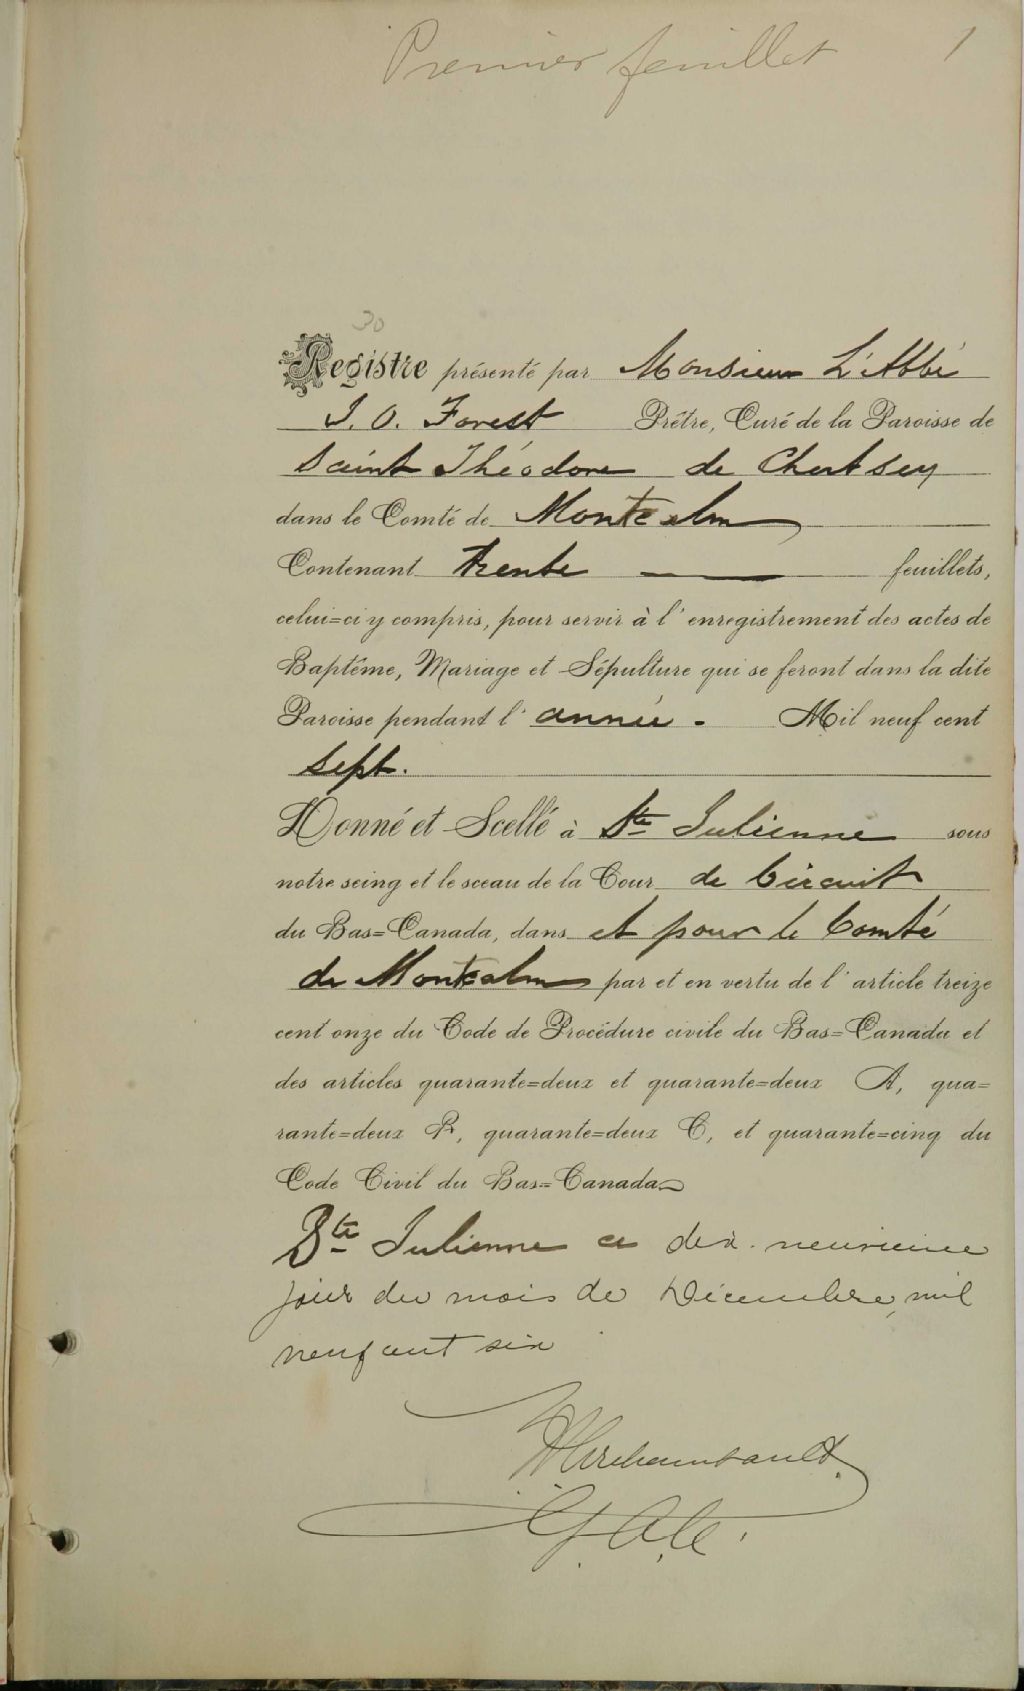 Premier feuillet 1
30
Registre présenté par Monsieur L'Abbé
J. O. Forest Prêtre, Curé de la Paroisse de
Saint Théodore de Chertsey
dans le Comté de Montcalm
Contenant trente feuillets,
celui=ci y compris, pour servir à l'enregistrement des actes de
Baptême, Mariage et Sépulture qui se feront dans la dite
Paroisse pendant l'année. Mil neuf cent
Sept.
Donné et Scellé à Ste Julienne sous
notre seing et le sceau de la Cour de Circuit
du Bas=Canada, dans et pour le Comté
de Montcalm par et en vertu de l'article treize
cent onze du Code de Procédure civile du Bas=Canada et
des articles quarante=deux et quarante=deux A, qua=
rante=deux B, quarante=deux C, et quarante=cinq du
Code Civil du Bas=Canada
Ste Julienne ce dix-neuvième
jour du mois de Décembre, mil
neuf cent six
Archambault